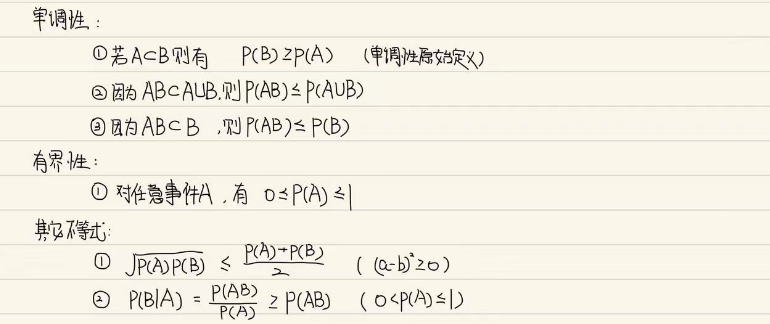 单调性：
① 若A⊂B则有 P(B)≥P(A) （单调性原始定义）
② 因为AB⊂A∪B,则P(AB)≤P(A∪B)
③ 因为AB⊂B ,则P(AB)≤P(B)
有界性：
① 对任意事件A，有 0≤P(A)≤1
其它不等式：
① √P(A)P(B) ≤ (P(A)+P(B))/2 （(a-b)²≥0）
② P(B|A) = P(AB)/P(A) ≥ P(AB) （0<P(A)≤1）